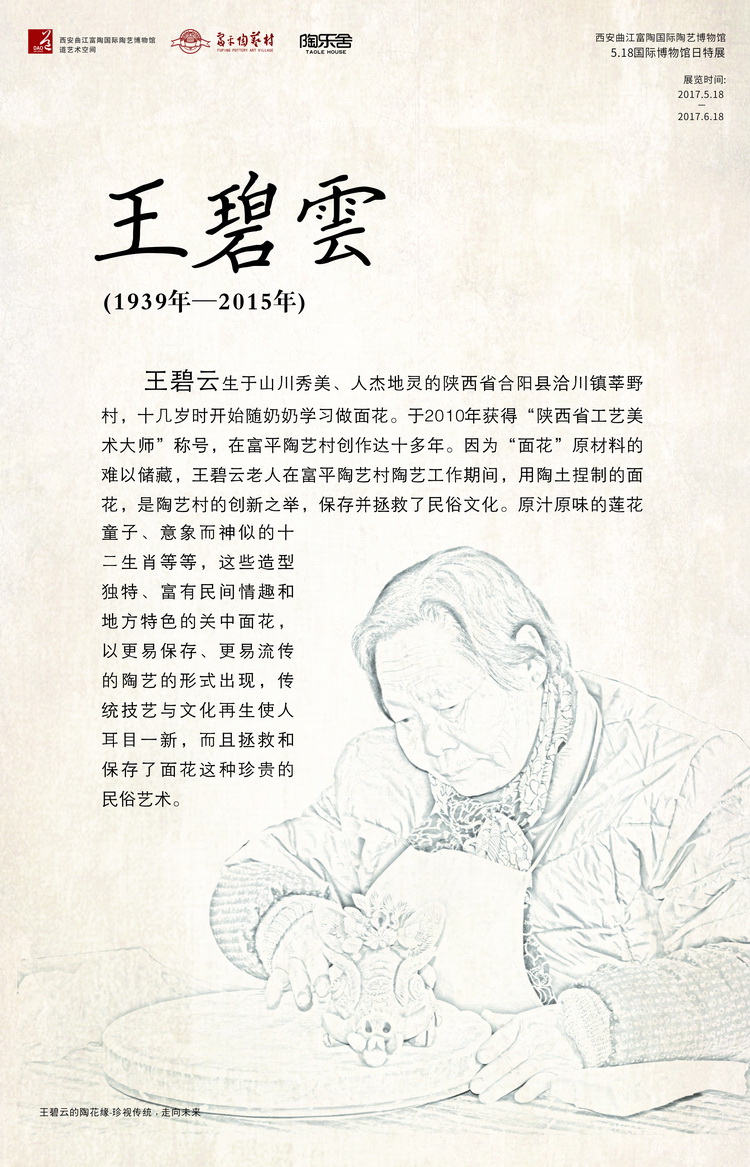 DAO
西安曲江富陶国际陶艺博物馆
道艺术空间
富平陶藝村
FUPING POTTERY ART VILLAGE
陶乐舍
TAOLE HOUSE
西安曲江富陶国际陶艺博物馆
5.18国际博物馆日特展
展览时间:
2017.5.18
—
2017.6.18
王碧雲
(1939年—2015年)
王碧云生于山川秀美、人杰地灵的陕西省合阳县洽川镇莘野
村，十几岁时开始随奶奶学习做面花。于2010年获得“陕西省工艺美
术大师”称号，在富平陶艺村创作达十多年。因为“面花”原材料的
难以储藏，王碧云老人在富平陶艺村陶艺工作期间，用陶土捏制的面
花，是陶艺村的创新之举，保存并拯救了民俗文化。原汁原味的莲花
童子、意象而神似的十
二生肖等等，这些造型
独特、富有民间情趣和
地方特色的关中面花，
以更易保存、更易流传
的陶艺的形式出现，传
统技艺与文化再生使人
耳目一新，而且拯救和
保存了面花这种珍贵的
民俗艺术。
王碧云的陶花缘·珍视传统，走向未来